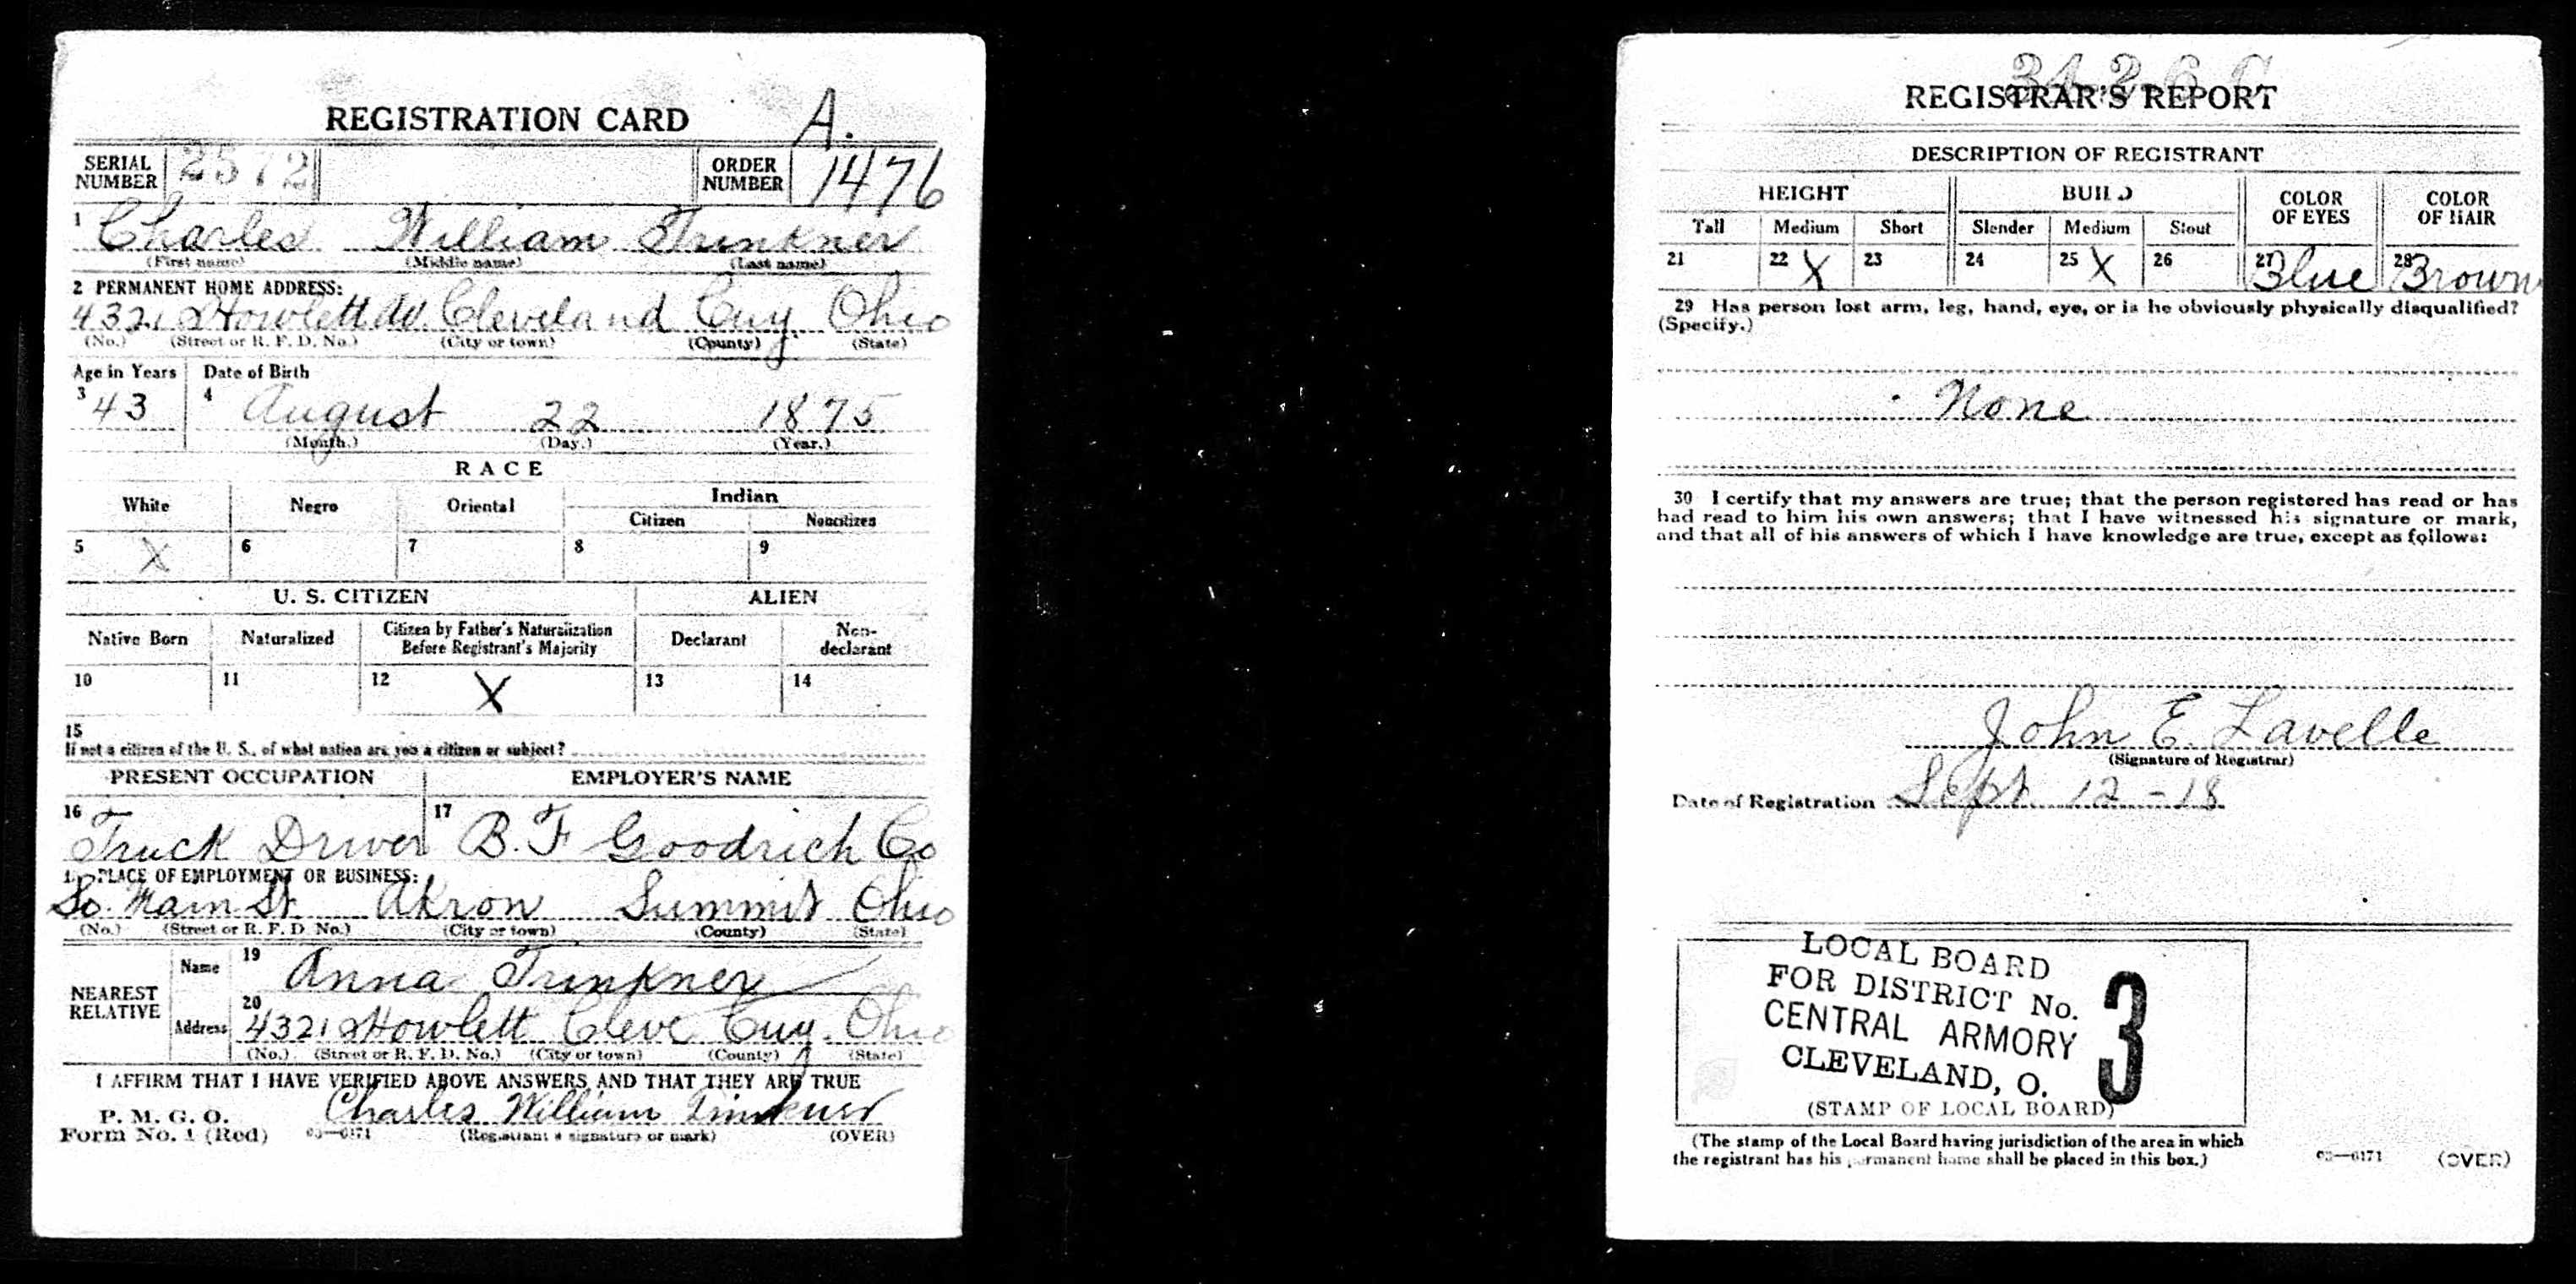 REGISTRATION CARD A.
SERIAL NUMBER 2572 ORDER NUMBER 1476
1 Charles William Trinkner
(First name) (Middle name) (Last name)
2 PERMANENT HOME ADDRESS:
4321 Howlett Cleveland Cuy Ohio
(No.) (Street or R. F. D. No.) (City or town) (County) (State)
Age in Years Date of Birth
3 43 4 August 22 1875
(Month.) (Day.) (Year.)
RACE
White Negro Oriental Indian
Citizen Noncitizen
5 X 6 7 8 9
U. S. CITIZEN ALIEN
Native Born Naturalized Citizen by Father's Naturalization Before Registrant's Majority Declarant Non-declarant
10 11 12 X 13 14
15
If not a citizen of the U. S., of what nation are you a citizen or subject?
PRESENT OCCUPATION EMPLOYER'S NAME
16 Truck Driver 17 B. F Goodrich Co
PLACE OF EMPLOYMENT OR BUSINESS:
So. Main St. Akron Summit Ohio
(No.) (Street or R. F. D. No.) (City or town) (County) (State)
NEAREST RELATIVE Name 19 Anna Trinkner
Address 20 4321 Howlett Cleve Cuy. Ohio
(No.) (Street or R. F. D. No.) (City or town) (County) (State)
I AFFIRM THAT I HAVE VERIFIED ABOVE ANSWERS AND THAT THEY ARE TRUE
P. M. G. O. Charles William Trinkner
Form No. 1 (Red) 03—6171 (Registrant's signature or mark) (OVER)
REGISTRAR'S REPORT
DESCRIPTION OF REGISTRANT
HEIGHT BUILD COLOR OF EYES COLOR OF HAIR
Tall Medium Short Slender Medium Stout
21 22 X 23 24 25 X 26 27 Blue 28 Brown
29 Has person lost arm, leg, hand, eye, or is he obviously physically disqualified?
(Specify.)
None
30 I certify that my answers are true; that the person registered has read or has
had read to him his own answers; that I have witnessed his signature or mark,
and that all of his answers of which I have knowledge are true, except as follows:
John E. Lavelle
(Signature of Registrar)
Date of Registration Sept. 12 - 18
LOCAL BOARD
FOR DISTRICT No. 3
CENTRAL ARMORY
CLEVELAND, O.
(STAMP OF LOCAL BOARD)
(The stamp of the Local Board having jurisdiction of the area in which
the registrant has his permanent home shall be placed in this box.)
03—6171 (OVER)